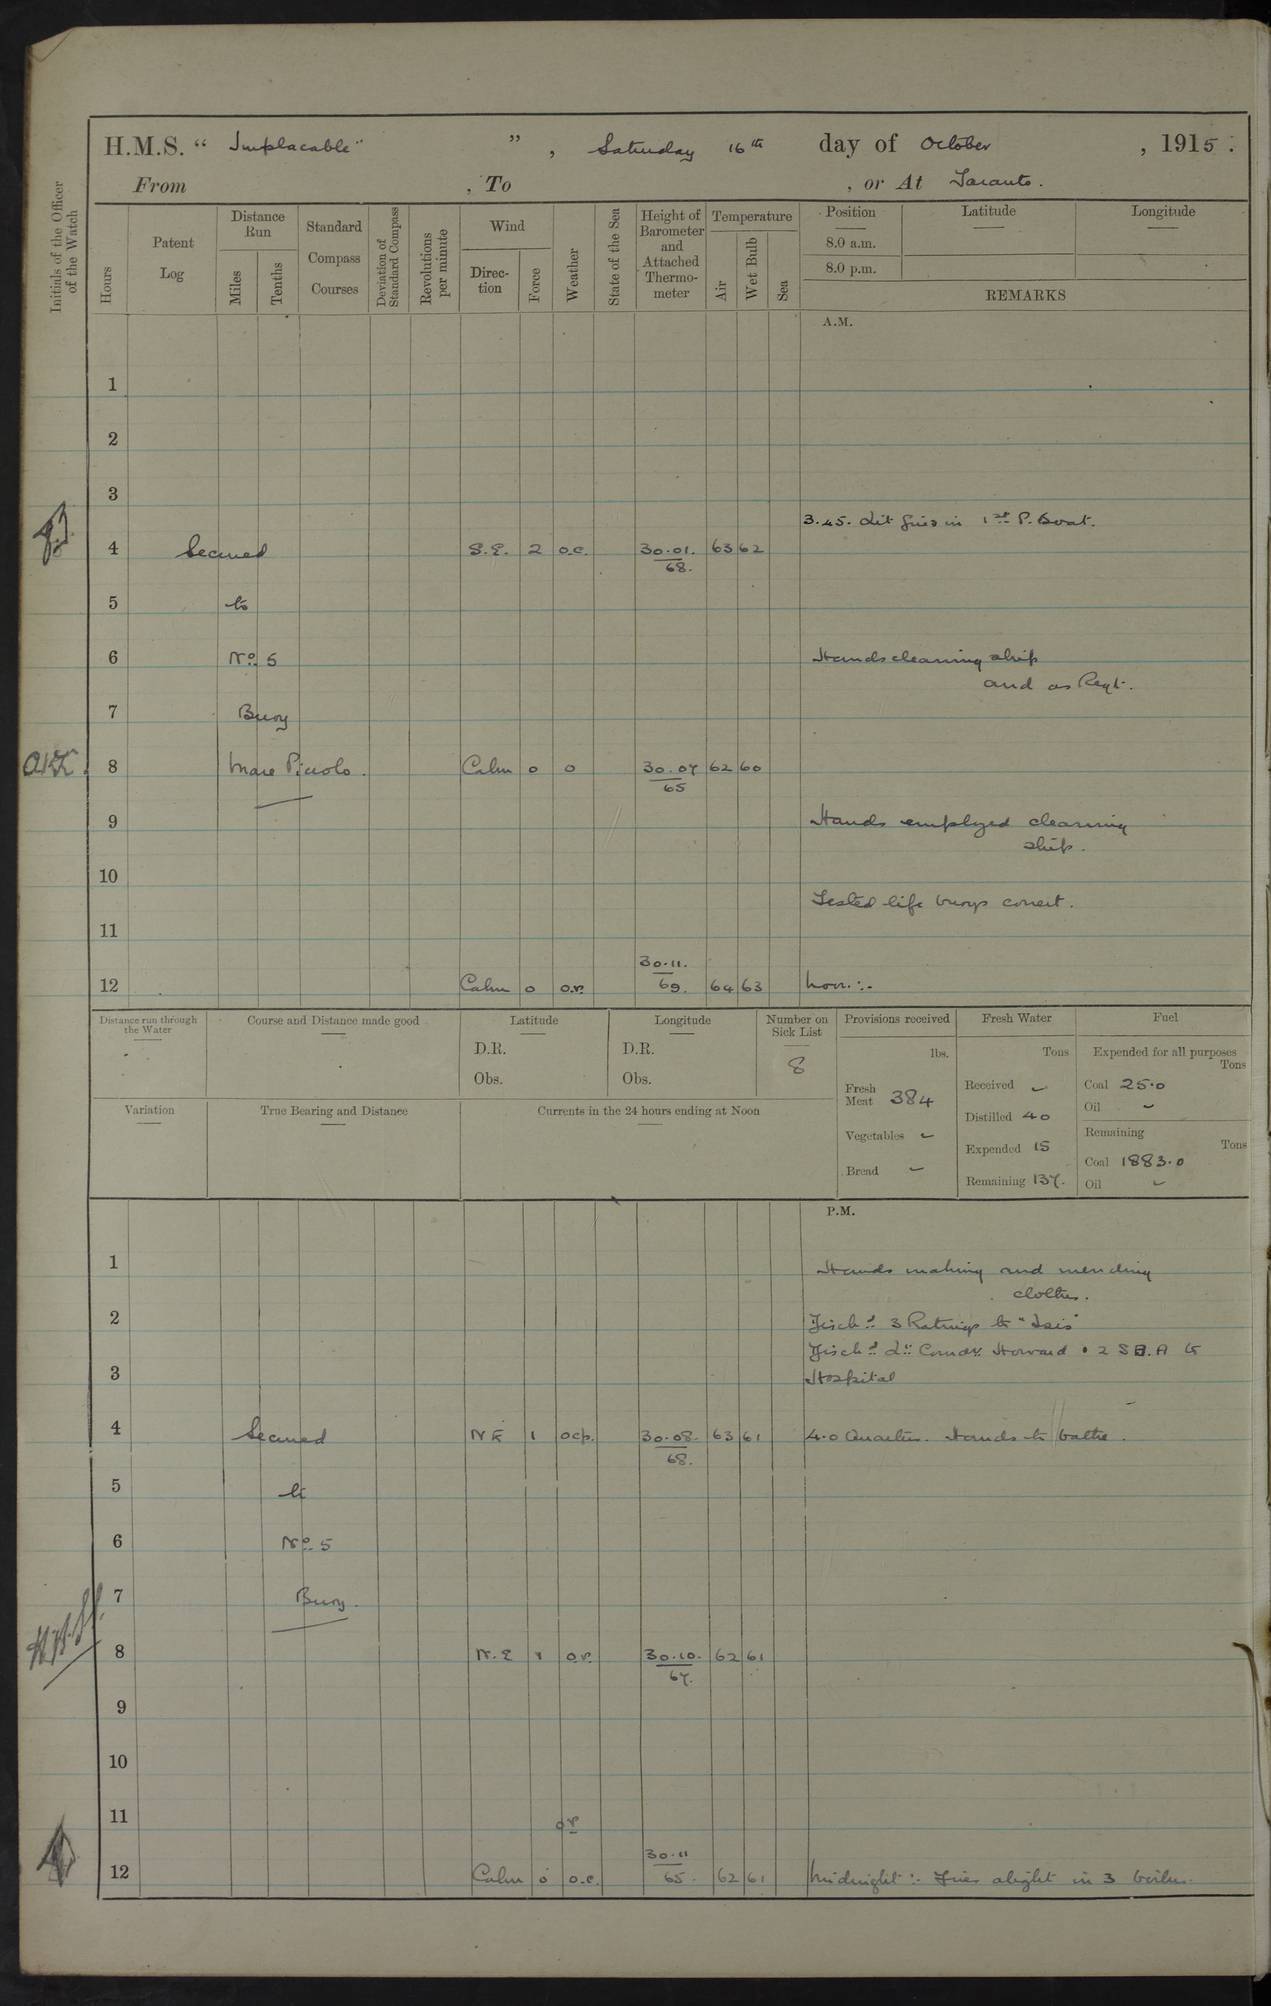 H.M.S. “ Implacable” ” , Saturday 16th day of October , 1915 .
From , To , or At Taranto.
Initials of the Officer of the Watch
Hours
Patent Log
Distance Run
Miles
Tenths
Standard Compass Courses
Deviation of Standard Compass
Revolutions per minute
Wind
Direc-tion
Force
Weather
State of the Sea
Height of Barometer and Attached Thermo-meter
Temperature
Air
Wet Bulb
Sea
Position
8.0 a.m.
8.0 p.m.
Latitude
Longitude
REMARKS
A.M.
1
2
3
3.45. Lit fires in 1st P. Boat.
4 Secured S.E. 2 o.c. 30.01. 63 62
68.
5 to
6 No. 5 Hands cleaning ship
and as Reqt.
7 Buoy
8 Mare Piccolo. Calm 0 0 30.07 62 60
65
9 Hands employed cleaning
ship.
10
Tested life buoys correct.
11
30.11.
12 Calm 0 o.r. 69. 64 63 Noon:-
Distance run through the Water
Course and Distance made good
Latitude
D.R.
Obs.
Longitude
D.R.
Obs.
Number on Sick List
8
Provisions received
lbs.
Fresh Meat 384
Vegetables ~
Bread ~
Fresh Water
Tons
Received ~
Distilled 40
Expended 15
Remaining 137.
Fuel
Expended for all purposes
Tons
Coal 25.0
Oil ~
Remaining
Tons
Coal 1883.0
Oil ~
Variation
True Bearing and Distance
Currents in the 24 hours ending at Noon
P.M.
1 Hands making and mending
clothes.
2 3 Ratings to "Isis"
Lt. Comdr. Howard 2 S.B.A to
3 Hospital
4 Secured NE 1 ocp. 30.08. 63 61 4.0 Quarters. Hands to bathe.
68.
5 to
6 No. 5
7 Buoy.
8 N.E 1 o.r. 30.10. 62 61
67.
9
10
11 or
30.11
12 Calm 0 o.c. 65. 62 61 Midnight:- Fires alight in 3 boilers.